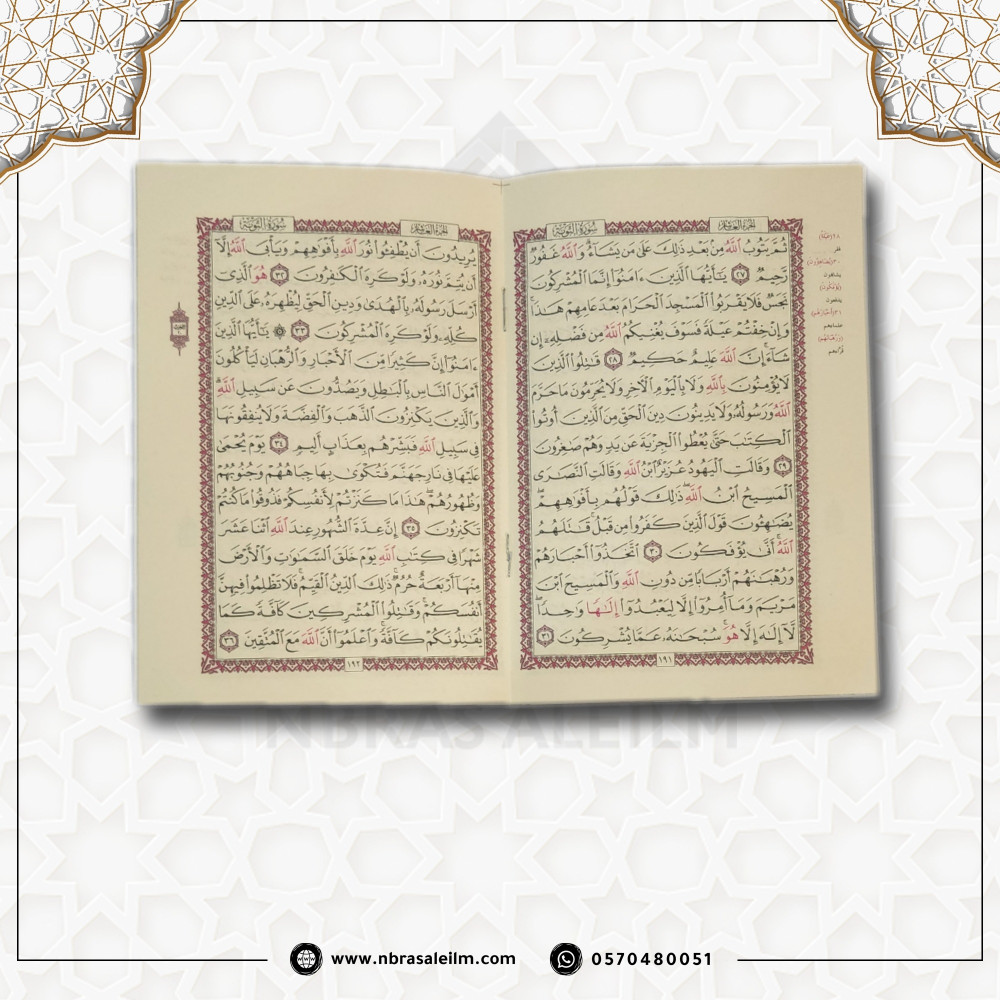 الجزء العاشر
سورة التوبة
ثُمَّ يَتُوبُ ٱللَّهُ مِنۢ بَعْدِ ذَٰلِكَ عَلَىٰ مَن يَشَآءُ ۗ وَٱللَّهُ غَفُورٌ
رَّحِيمٌ ٢٧ يَـٰٓأَيُّهَا ٱلَّذِينَ ءَامَنُوٓا۟ إِنَّمَا ٱلْمُشْرِكُونَ
نَجَسٌ فَلَا يَقْرَبُوا۟ ٱلْمَسْجِدَ ٱلْحَرَامَ بَعْدَ عَامِهِمْ هَـٰذَا ۚ
وَإِنْ خِفْتُمْ عَيْلَةً فَسَوْفَ يُغْنِيكُمُ ٱللَّهُ مِن فَضْلِهِۦٓ إِن
شَآءَ ۚ إِنَّ ٱللَّهَ عَلِيمٌ حَكِيمٌ ٢٨ قَـٰتِلُوا۟ ٱلَّذِينَ
لَا يُؤْمِنُونَ بِٱللَّهِ وَلَا بِٱلْيَوْمِ ٱلْـَٔاخِرِ وَلَا يُحَرِّمُونَ مَا حَرَّمَ
ٱللَّهُ وَرَسُولُهُۥ وَلَا يَدِينُونَ دِينَ ٱلْحَقِّ مِنَ ٱلَّذِينَ أُوتُوا۟
ٱلْكِتَـٰبَ حَتَّىٰ يُعْطُوا۟ ٱلْجِزْيَةَ عَن يَدٍ وَهُمْ صَـٰغِرُونَ
٢٩ وَقَالَتِ ٱلْيَهُودُ عُزَيْرٌ ٱبْنُ ٱللَّهِ وَقَالَتِ ٱلنَّصَـٰرَى
ٱلْمَسِيحُ ٱبْنُ ٱللَّهِ ۖ ذَٰلِكَ قَوْلُهُم بِأَفْوَٰهِهِمْ ۖ
يُضَـٰهِـُٔونَ قَوْلَ ٱلَّذِينَ كَفَرُوا۟ مِن قَبْلُ ۚ قَـٰتَلَهُمُ
ٱللَّهُ ۚ أَنَّىٰ يُؤْفَكُونَ ٣٠ ٱتَّخَذُوٓا۟ أَحْبَارَهُمْ
وَرُهْبَـٰنَهُمْ أَرْبَابًا مِّن دُونِ ٱللَّهِ وَٱلْمَسِيحَ ٱبْنَ
مَرْيَمَ وَمَآ أُمِرُوٓا۟ إِلَّا لِيَعْبُدُوٓا۟ إِلَـٰهًا وَٰحِدًا ۖ
لَّآ إِلَـٰهَ إِلَّا هُوَ ۚ سُبْحَـٰنَهُۥ عَمَّا يُشْرِكُونَ ٣١
١٩١
الجزء العاشر
سورة التوبة
يُرِيدُونَ أَن يُطْفِـُٔوا۟ نُورَ ٱللَّهِ بِأَفْوَٰهِهِمْ وَيَأْبَى ٱللَّهُ إِلَّآ
أَن يُتِمَّ نُورَهُۥ وَلَوْ كَرِهَ ٱلْكَـٰفِرُونَ ٣٢ هُوَ ٱلَّذِىٓ
أَرْسَلَ رَسُولَهُۥ بِٱلْهُدَىٰ وَدِينِ ٱلْحَقِّ لِيُظْهِرَهُۥ عَلَى ٱلدِّينِ
كُلِّهِۦ وَلَوْ كَرِهَ ٱلْمُشْرِكُونَ ٣٣ ۞ يَـٰٓأَيُّهَا ٱلَّذِينَ
ءَامَنُوٓا۟ إِنَّ كَثِيرًا مِّنَ ٱلْأَحْبَارِ وَٱلرُّهْبَانِ لَيَأْكُلُونَ
أَمْوَٰلَ ٱلنَّاسِ بِٱلْبَـٰطِلِ وَيَصُدُّونَ عَن سَبِيلِ ٱللَّهِ ۗ
وَٱلَّذِينَ يَكْنِزُونَ ٱلذَّهَبَ وَٱلْفِضَّةَ وَلَا يُنفِقُونَهَا
فِى سَبِيلِ ٱللَّهِ فَبَشِّرْهُم بِعَذَابٍ أَلِيمٍ ٣٤ يَوْمَ يُحْمَىٰ
عَلَيْهَا فِى نَارِ جَهَنَّمَ فَتُكْوَىٰ بِهَا جِبَاهُهُمْ وَجُنُوبُهُمْ
وَظُهُورُهُمْ ۖ هَـٰذَا مَا كَنَزْتُمْ لِأَنفُسِكُمْ فَذُوقُوا۟ مَا كُنتُمْ
تَكْنِزُونَ ٣٥ إِنَّ عِدَّةَ ٱلشُّهُورِ عِندَ ٱللَّهِ ٱثْنَا عَشَرَ
شَهْرًا فِى كِتَـٰبِ ٱللَّهِ يَوْمَ خَلَقَ ٱلسَّمَـٰوَٰتِ وَٱلْأَرْضَ
مِنْهَآ أَرْبَعَةٌ حُرُمٌ ۚ ذَٰلِكَ ٱلدِّينُ ٱلْقَيِّمُ ۚ فَلَا تَظْلِمُوا۟ فِيهِنَّ
أَنفُسَكُمْ ۚ وَقَـٰتِلُوا۟ ٱلْمُشْرِكِينَ كَآفَّةً كَمَا
يُقَـٰتِلُونَكُمْ كَآفَّةً ۚ وَٱعْلَمُوٓا۟ أَنَّ ٱللَّهَ مَعَ ٱلْمُتَّقِينَ ٣٦
١٩٢
NBRAS ALEILM
www.nbrasaleilm.com
0570480051